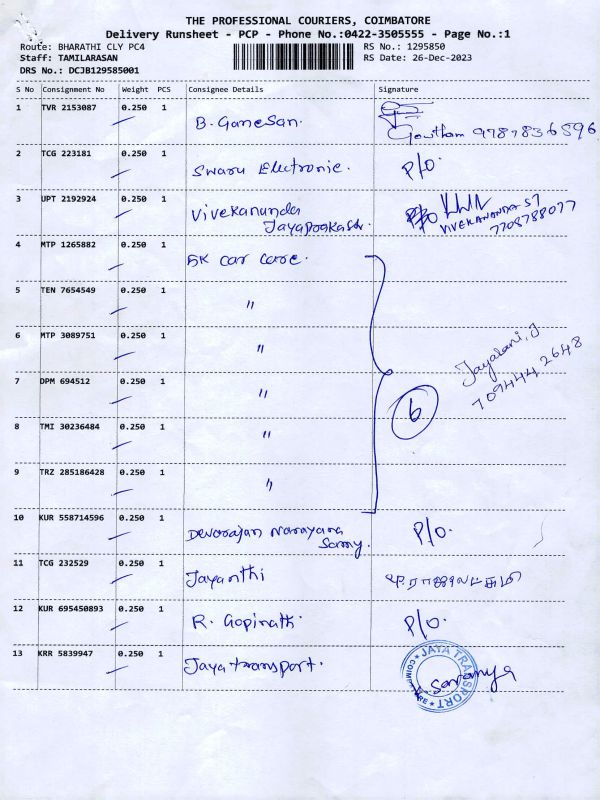 THE PROFESSIONAL COURIERS, COIMBATORE
Delivery Runsheet - PCP - Phone No.:0422-3505555 - Page No.:1
Route: BHARATHI CLY PC4 RS No.: 1295850
Staff: TAMILARASAN RS Date: 26-Dec-2023
DRS No.: DCJB129585001
S No Consignment No Weight PCS Consignee Details Signature
1 TVR 2153087 0.250 1 B. Ganesan. Gowtham 9787836596
2 TCG 223181 0.250 1 Swaru Electronic. P/O.
3 UPT 2192924 0.250 1 Vivekananda P/O VIVEKANANDA ST
Jayaprakash. 7708788077
4 MTP 1265882 0.250 1 SK car care.
5 TEN 7654549 0.250 1 "
6 MTP 3089751 0.250 1 " Jayarani, J
7 DPM 694512 0.250 1 " 6 709444 2648
8 TMI 30236484 0.250 1 "
9 TRZ 285186428 0.250 1 "
10 KUR 558714596 0.250 1 Devarajan Narayana P/O.
Samy.
11 TCG 232529 0.250 1 Jayanthi ராஜலட்சுமி
12 KUR 695450893 0.250 1 R. Gopinath. P/O.
13 KRR 5839947 0.250 1 Jaya transport. JAYA TRANSPORT
Saranya